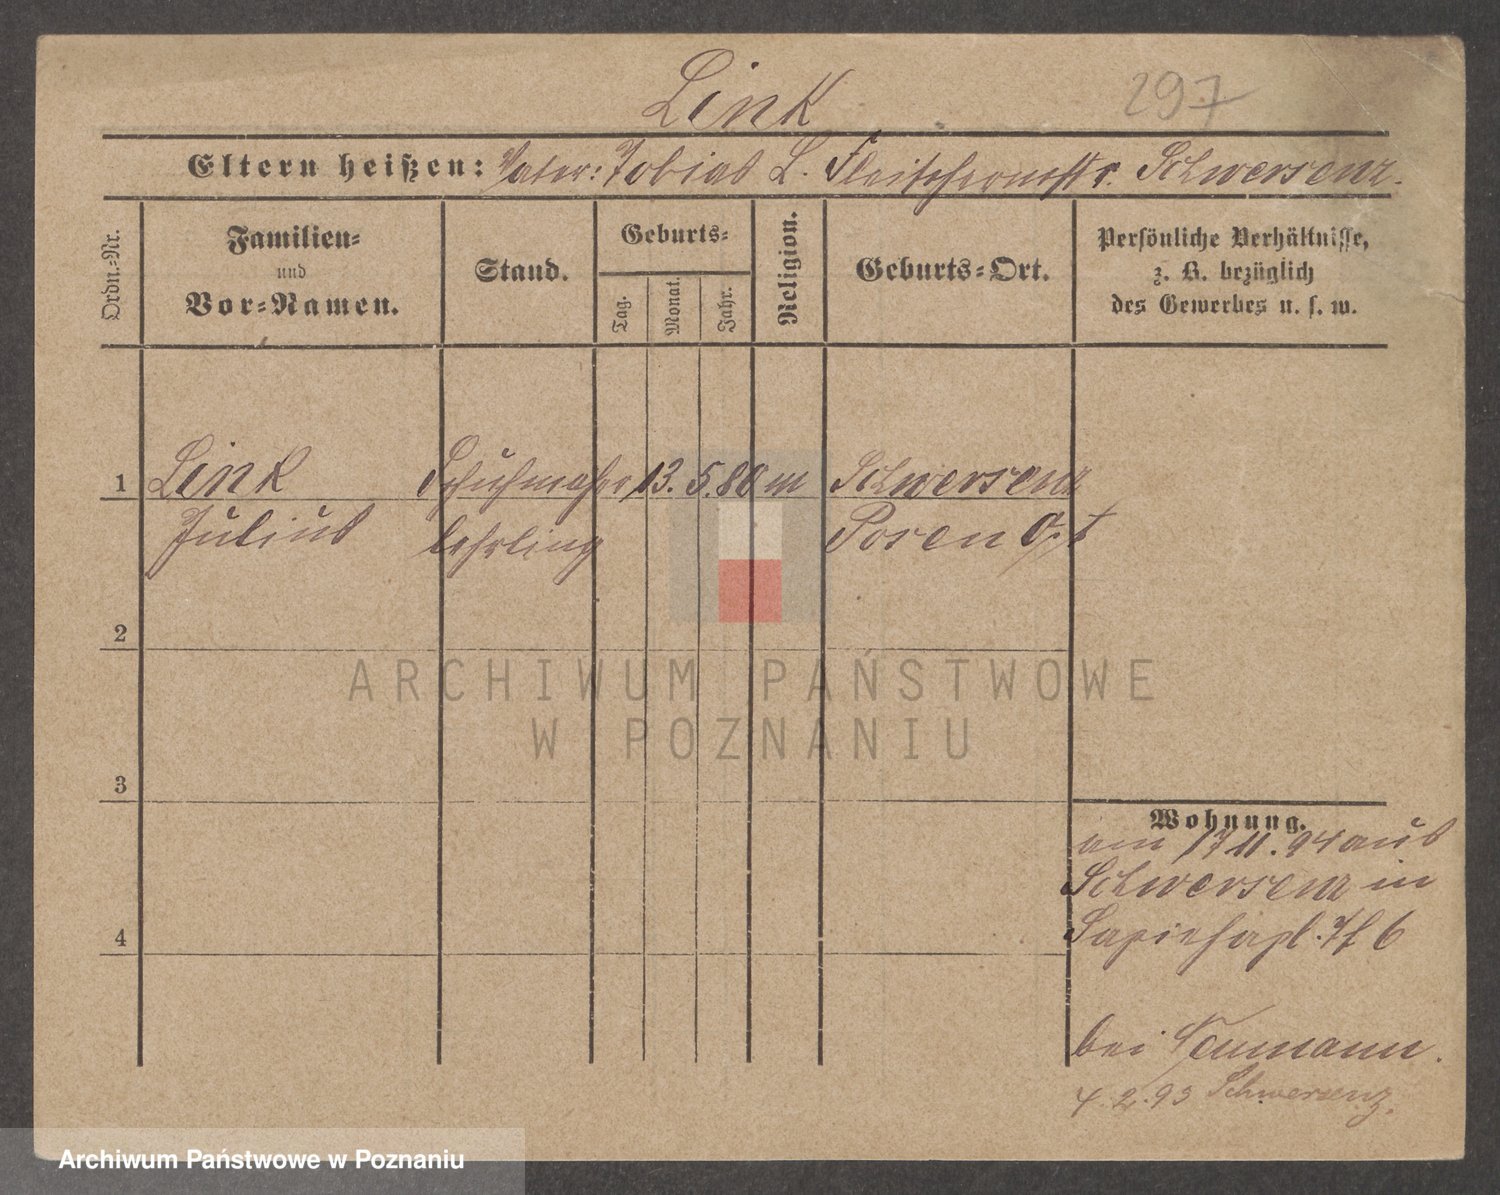 Link
297
Eltern heißen: Vater: Tobias L. Fleischermstr. Schwersenz.
Ordn.-Nr.
Familien-
und
Vor-Namen.
Stand.
Geburts-
Tag.
Monat.
Jahr.
Religion.
Geburts-Ort.
Persönliche Verhältnisse,
z. B. bezüglich
des Gewerbes u. s. w.
1 Link Schuhmacher 13. 5. 80 m Schwersenz
Julius lehrling Posen Ost
2
3
4
Wohnung.
am 17 11. 94 aus
Schwersenz in
Sapiehapl. 7/8 6
bei Neumann.
4. 2. 95 Schwersenz.
ARCHIWUM PAŃSTWOWE
W POZNANIU
Archiwum Państwowe w Poznaniu